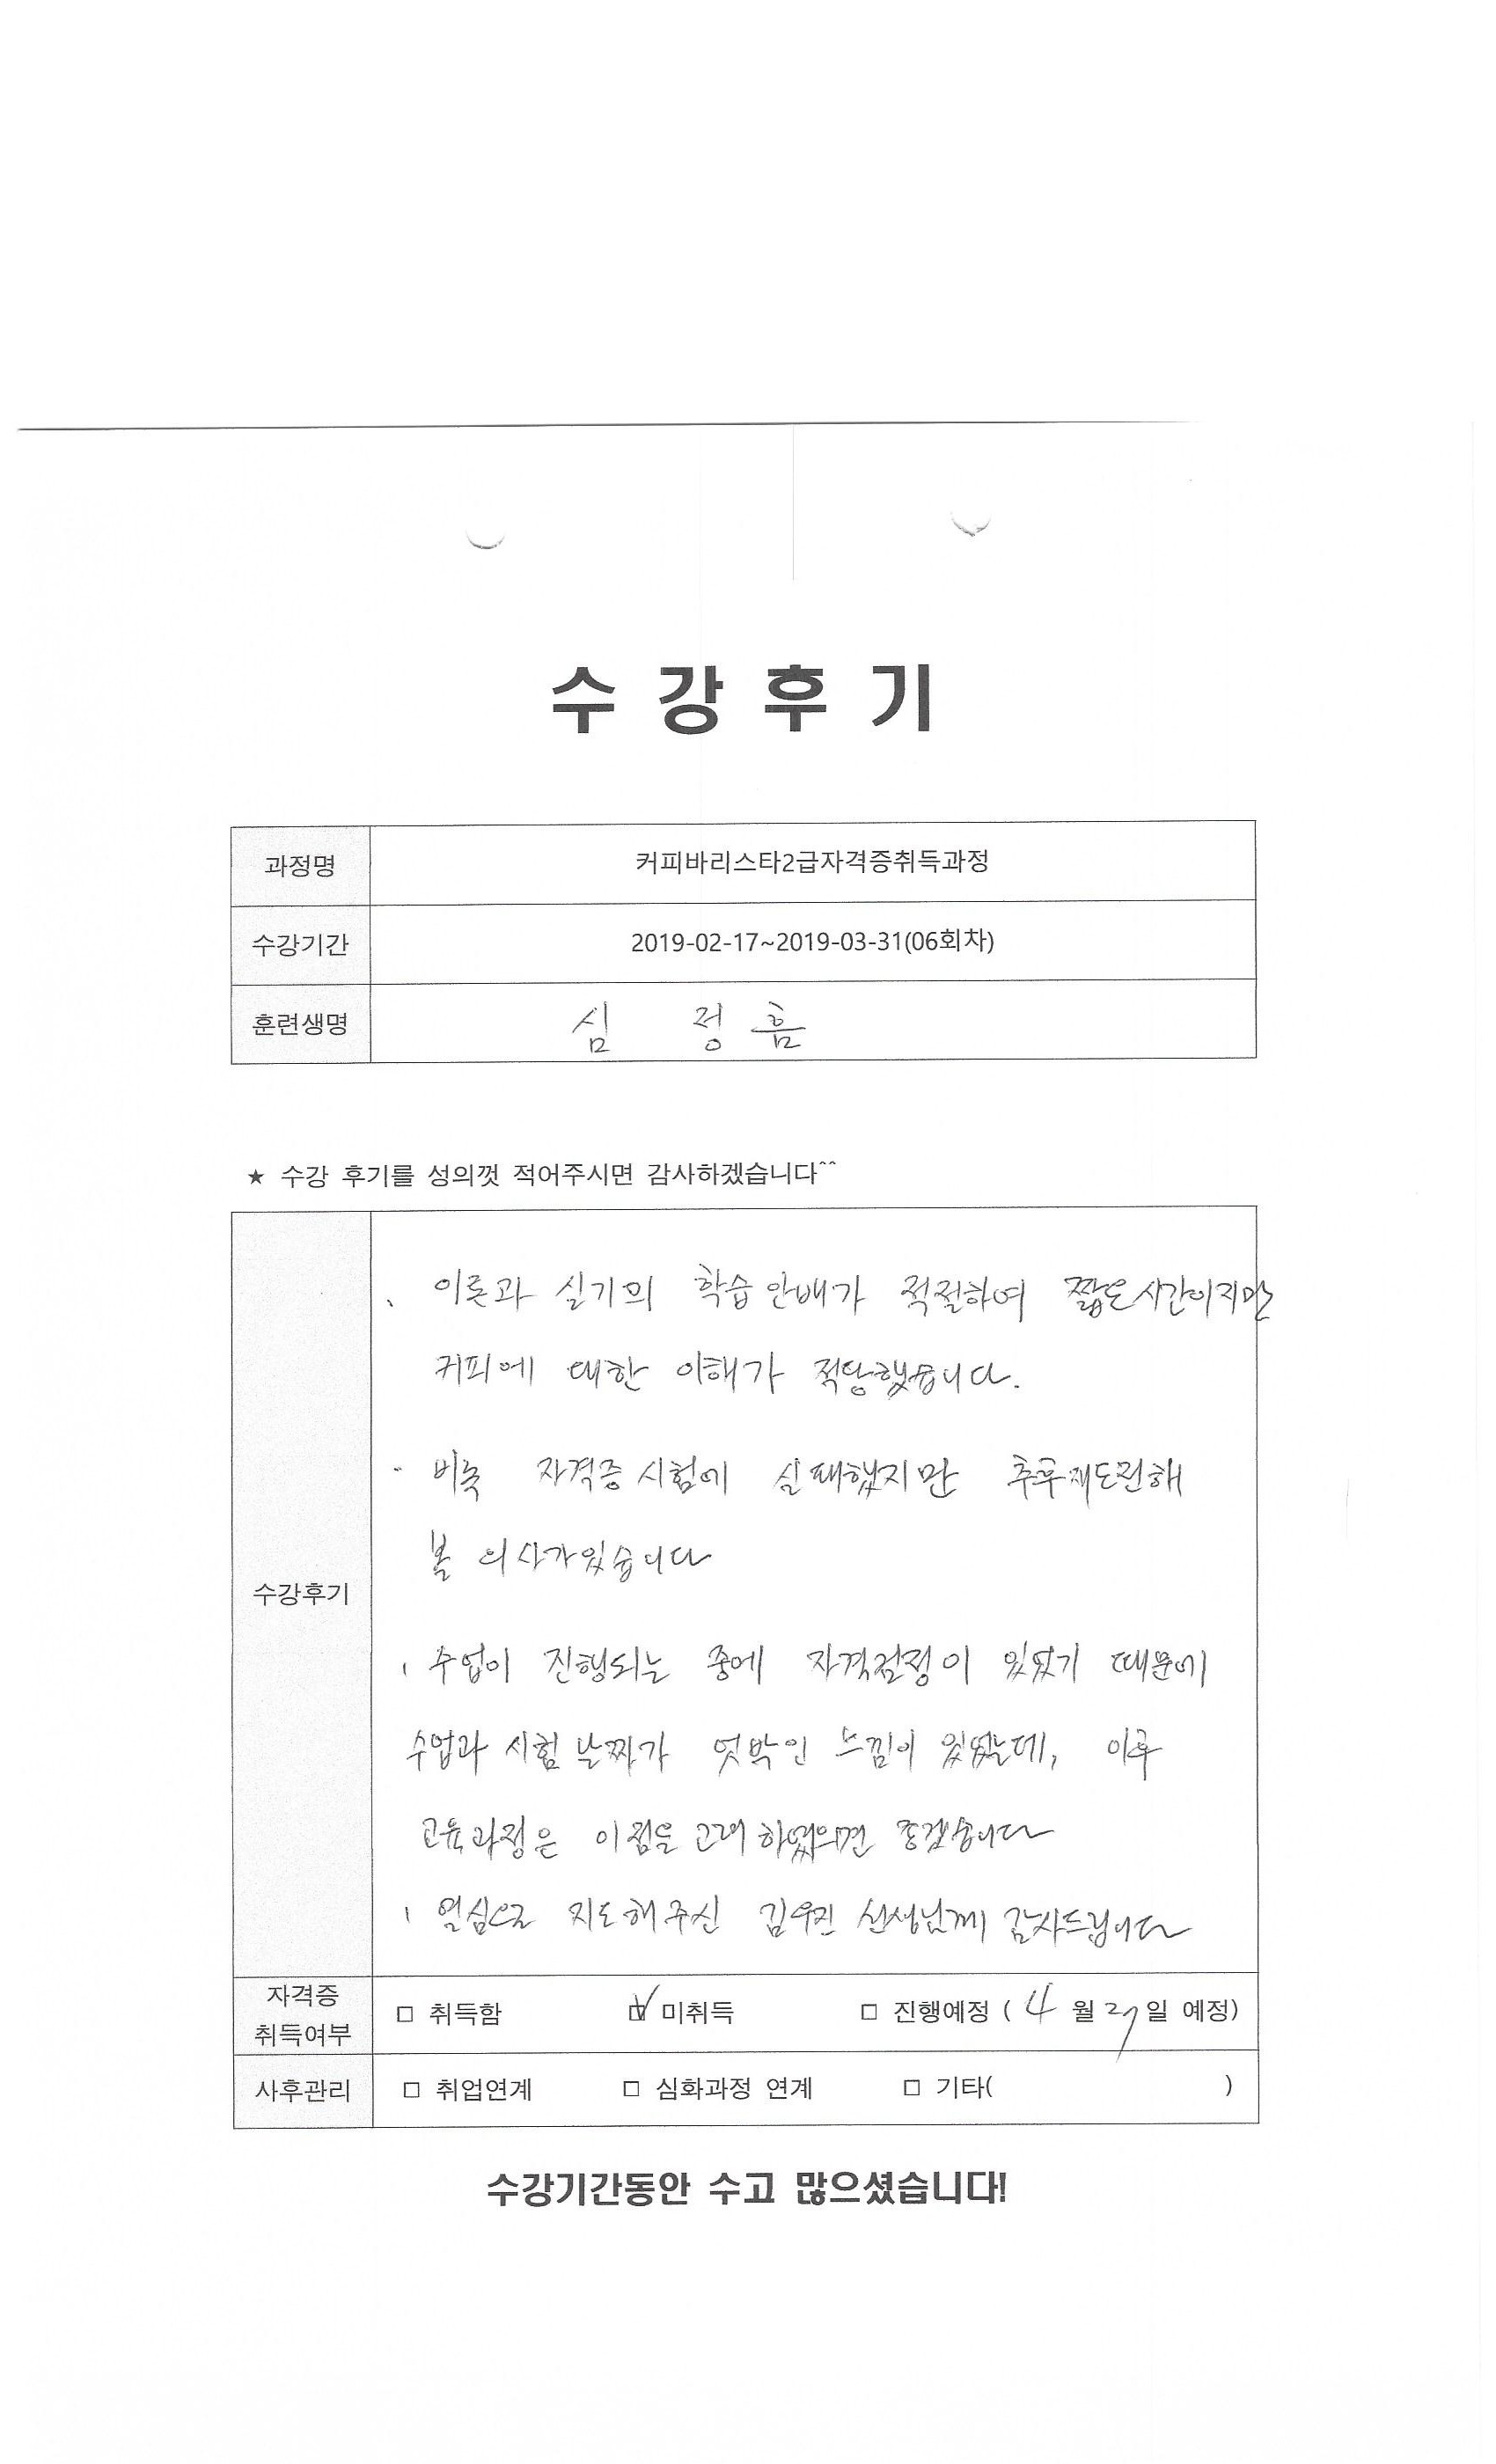 수 강 후 기
과정명 커피바리스타2급자격증취득과정
수강기간 2019-02-17~2019-03-31(06회차)
훈련생명 심 정흠
★ 수강 후기를 성의껏 적어주시면 감사하겠습니다^^
수강후기
이론과 실기의 학습 안배가 적절하여 짧은시간이지만
커피에 대한 이해가 적당했습니다.
비록 자격증 시험에 실패했지만 추후재도전해
볼 의사가있습니다
수업이 진행되는 중에 자격검정이 있었기 때문에
수업과 시험 날짜가 엇박인 느낌이 있었는데, 이후
교육과정은 이점을 고려하였으면 좋겠습니다
열심으로 지도해주신 김우진 선생님께 감사드립니다
자격증 취득여부 □ 취득함 □ 미취득 □ 진행예정 ( 4 월 27 일 예정)
사후관리 □ 취업연계 □ 심화과정 연계 □ 기타( )
수강기간동안 수고 많으셨습니다!